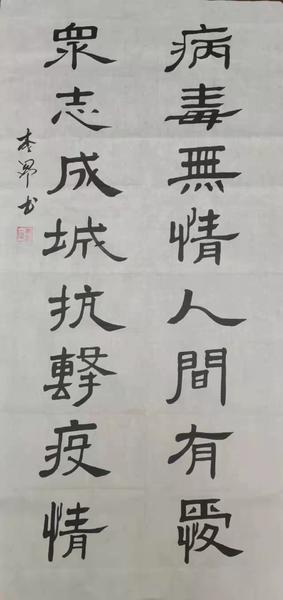 病毒無情人間有愛
衆志成城抗擊疫情
本昇书